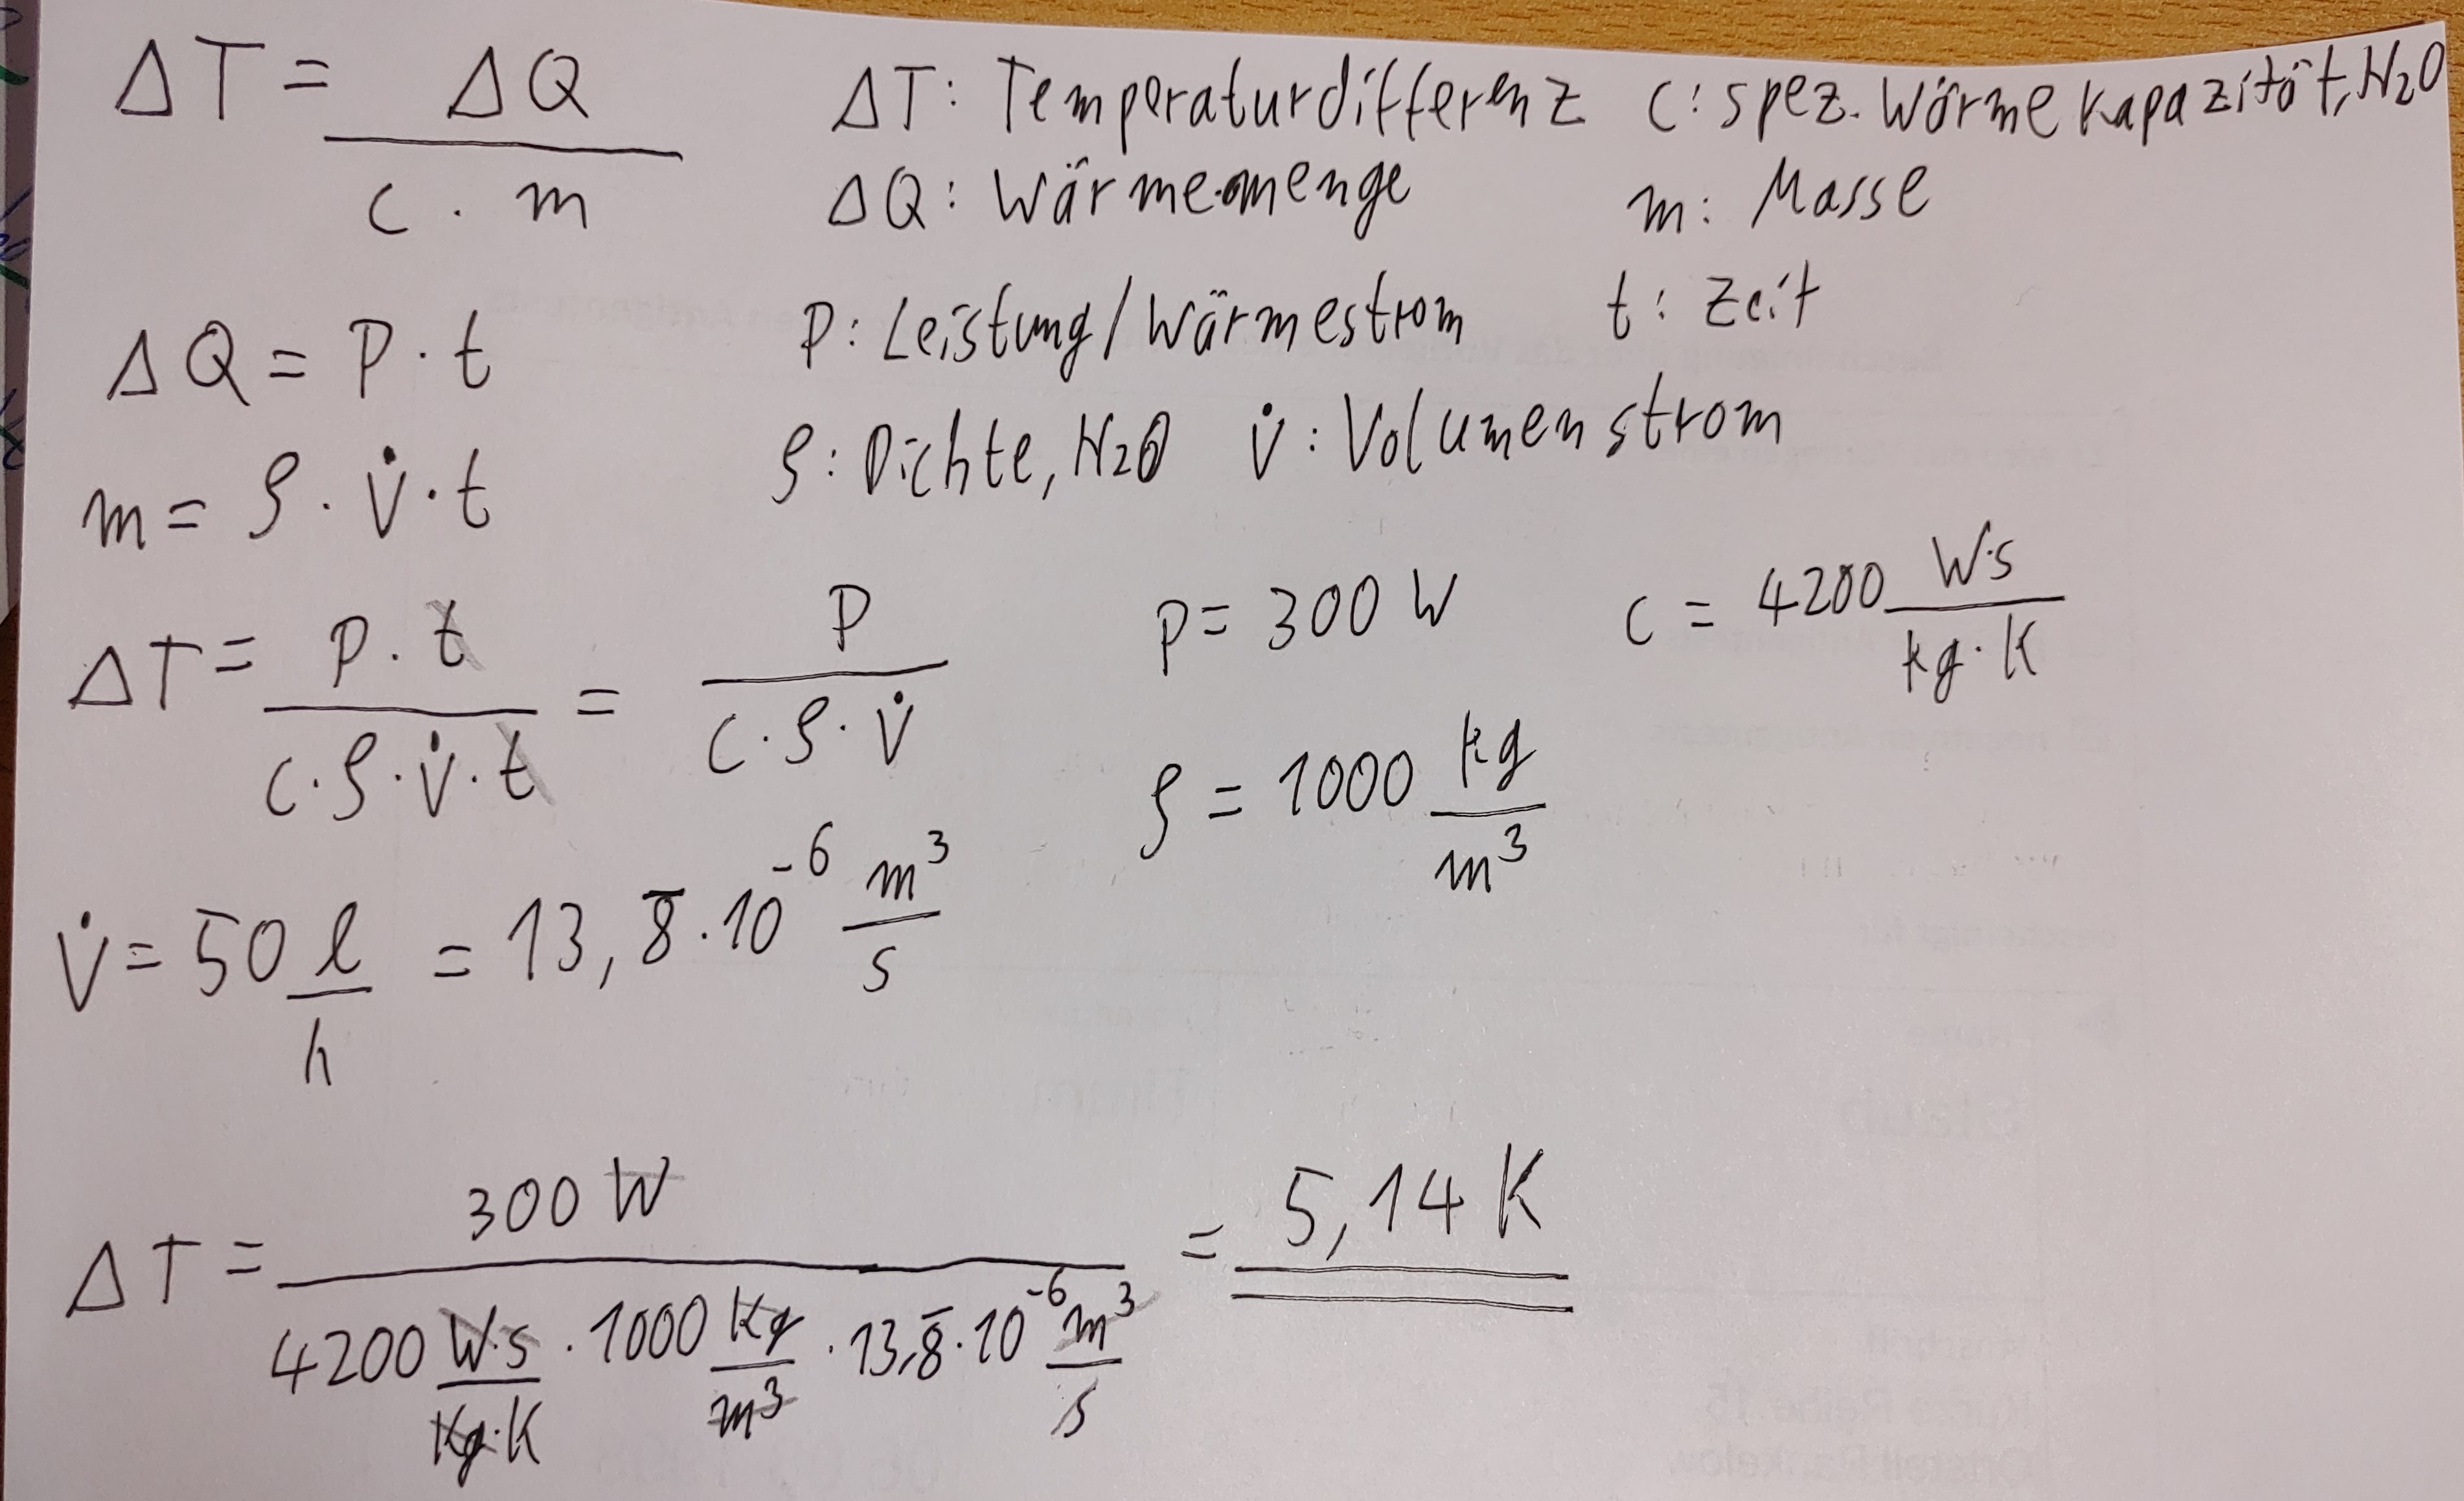 ΔT = ΔQ / (c · m)
ΔT: Temperaturdifferenz c: spez. Wärmekapazität, H₂O
ΔQ: Wärmemenge m: Masse
ΔQ = P · t
P: Leistung/Wärmestrom t: Zeit
m = ρ · V̇ · t
ρ: Dichte, H₂O V̇: Volumenstrom
ΔT = (P · t) / (c · ρ · V̇ · t) = P / (c · ρ · V̇)
P = 300 W c = 4200 (W·s) / (kg · K)
ρ = 1000 kg / m³
V̇ = 50 l / h = 13,8̅ · 10⁻⁶ m³ / s
ΔT = 300 W / (4200 (W·s) / (kg·K) · 1000 kg / m³ · 13,8̅ · 10⁻⁶ m³ / s) = 5,14 K